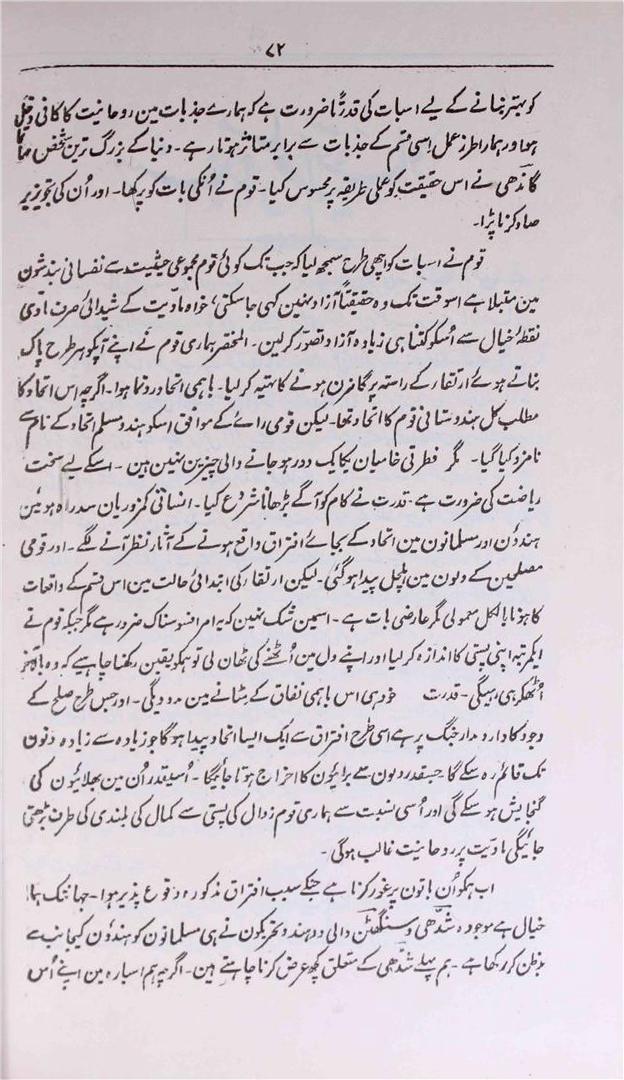 ۷۲
کو بہتر بنانے کے لیے اسبات کی قدرتًا ضرورت ہے کہ ہمارے جذبات مین روحانیت کا کافی دخل
ہو اور ہمارا طرز عمل اِسی قسم کے جذبات سے برابر متاثر ہوتا رہے۔ دنیا کے بزرگ ترین شخص مہاتما
گاندھی نے اس حقیقت کو عملی طریقہ پر محسوس کیا۔ قوم نے اُنکی بات کو پرکھا۔ اور اُن کی تجویز پر
صاد کرنا پڑا۔
قوم نے اسبات کو اچھی طرح سمجھ لیا کہ جب تک کوئی قوم مجموعی حیثیت سے نفسانی بندشون
مین مبتلا ہے اسوقت تک وہ حقیقتاً آزاد نہین کہی جا سکتی، خواہ مادّیت کے شیدائی صرف مادّی
نقطۂ خیال سے اُسکو کتنا ہی زیادہ آزاد تصوّر کر لین۔ المختصر ہماری قوم نے اپنے آپکو ہر طرح پاک
بناتے ہوئے ارتقار کے راستہ پر گامزن ہونے کا تہیہ کر لیا۔ باہمی اتحاد رونما ہوا۔ اگرچہ اس اتحاد کا
مطلب کل ہندوستانی قوم کا اتحاد تھا۔ لیکن قومی رائے کے موافق اسکو ہندو مسلم اتحاد کے نام سے
نامزد کیا گیا۔ مگر فطرتی خامیان یکایک دور ہو جانے والی چیزین نہین ہین۔ اسکے لیے سخت
ریاضت کی ضرورت ہے۔ قدرت نے کام کو آگے بڑھانا شروع کیا۔ انسانی کمزوریان سد راہ ہوئین
ہندوٗن اور مسلمانون مین اتحاد کے بجائے افتراق واقع ہونے کے آثار نظر آنے لگے۔ اور قومی
مصلحین کے دلون مین ہلچل پیدا ہو گئی۔ لیکن ارتقار کی ابتدائی حالت مین اس قسم کے واقعات
کا ہونا بالکل معمولی مگر عارضی بات ہے۔ اسمین شک نہین کہ یہ امر افسوسناک ضرور ہے مگر جبکہ قوم نے
ایکمرتبہ اپنی پستی کا اندازہ کر لیا اور اپنے دل مین اُٹھنے کی ٹھان لی تو ہمکو یقین رکھنا چاہیے کہ وہ بالآخر
اُٹھکر ہی رہیگی۔ قدرت خود ہی اس باہمی نفاق کے مٹانے مین مدد دیگی۔ اور جس طرح صلح کے
وجود کا دارومدار جنگ پر ہے اسی طرح افتراق سے ایک ایسا اتحاد پیدا ہوگا جو زیادہ سے زیادہ دنون
تک قائم رہ سکے گا۔ جسقدر دلون سے برائیون کا اخراج ہوتا جائیگا۔ اُسیقدر اُن مین بھلائیون کی
گنجایش ہو سکے گی اور اُسی نسبت سے ہماری قوم زوال کی پستی سے کمال کی بلندی کی طرف بڑھتی
جائیگی مادّیت پر روحانیت غالب ہوگی۔
اب ہمکو اُن باتون پر غور کرنا ہے جنکے سبب افتراق مذکورہ وقوع پذیر ہوا۔ جہانتک ہمارا
خیال ہے موجودہ شدّھی و سنگھٹن والی دو ہندو تحریکون نے ہی مسلمانون کو ہندوٗن کیجانب سے
بدظن کر رکھا ہے۔ ہم پہلے شدّھی کے متعلق کچھ عرض کرنا چاہتے ہین۔ اگرچہ ہم اسبارہ مین اپنے اُس